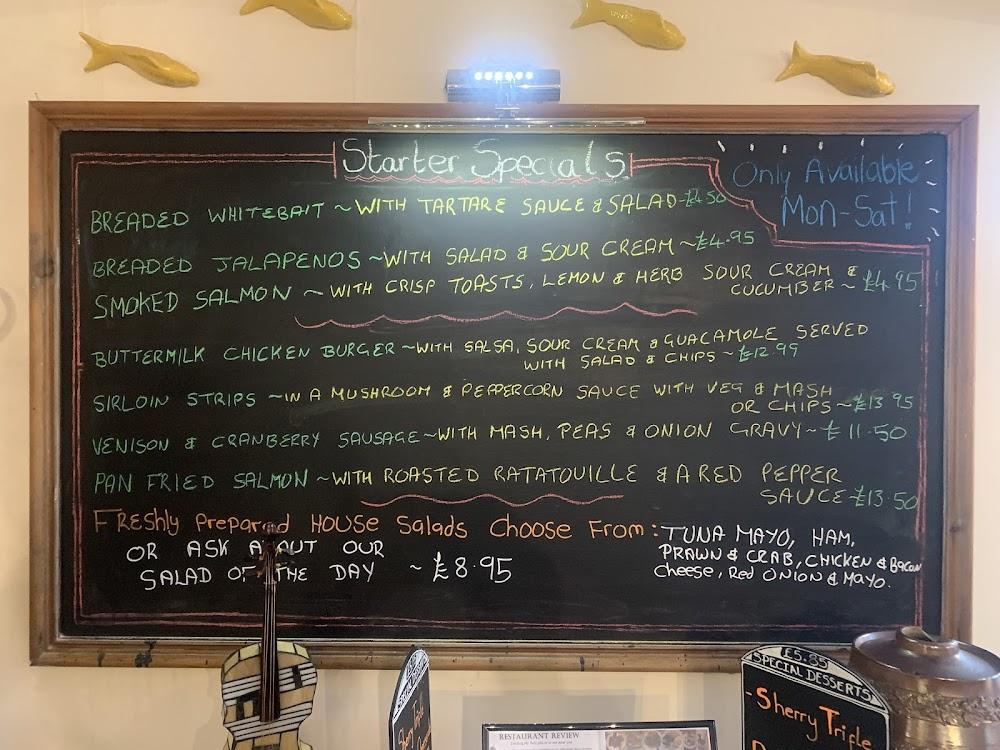 Starter Specials
Only Available
Mon-Sat!
BREADED WHITEBAIT ~ WITH TARTARE SAUCE & SALAD - £4.50
BREADED JALAPENOS ~ WITH SALAD & SOUR CREAM ~ £4.95
SMOKED SALMON ~ WITH CRISP TOASTS, LEMON & HERB SOUR CREAM &
CUCUMBER ~ £4.95
BUTTERMILK CHICKEN BURGER ~ WITH SALSA, SOUR CREAM & GUACAMOLE SERVED
WITH SALAD & CHIPS ~ £12.99
SIRLOIN STRIPS ~ IN A MUSHROOM & PEPPERCORN SAUCE WITH VEG & MASH
OR CHIPS ~ £13.95
VENISON & CRANBERRY SAUSAGE ~ WITH MASH, PEAS & ONION GRAVY ~ £11.50
PAN FRIED SALMON ~ WITH ROASTED RATATOUILLE & A RED PEPPER
SAUCE £13.50
FREShly PrePared HOUSe Salads Choose From: TUNA MAYO, HAM,
OR ASK ABOUT OUR PRAWN & CRAB, CHICKEN & Bacon
SALAD OF THE DAY ~ £8.95 Cheese, Red ONION & MAYO.
£5.85
SPECIAL DESSERTS
- Sherry Trifle
RESTAURANT REVIEW